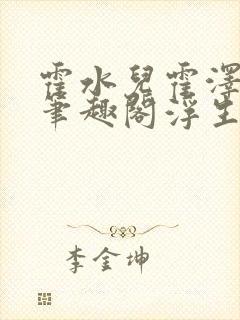 霍水兒霍澤
筆趣閣浮生
李金坤